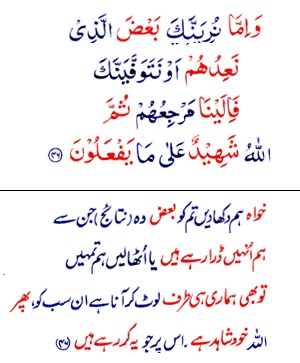 وَاِمَّا نُرِيَنَّكَ بَعْضَ الَّذِىْ
نَعِدُهُمْ اَوْ نَتَوَفَّيَنَّكَ
فَاِلَيْنَا مَرْجِعُهُمْ ثُمَّ
اللّٰهُ شَهِيْدٌ عَلٰى مَا يَفْعَلُوْنَ ﴿۴۶﴾
خواہ ہم دکھا دیں تم کو بعض وہ (نتائج) جن سے
ہم اُنہیں ڈرا رہے ہیں یا اُٹھا لیں ہم تمہیں
تو بھی ہماری ہی طرف لوٹ کر آنا ہے ان سب کو، پھر
اللہ خود شاہد ہے ۔ اس پر جو یہ کر رہے ہیں ﴿۴۶﴾